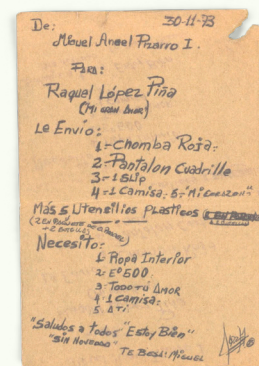 De: 30-11-73
Miguel Angel Pizarro I.
Para:
Raquel López Piña
(Mi gran Amor)
Le Envío:
1-Chomba Roja.-
2-Pantalon Cuadrille
3-1 Slip
4-1 Camisa. 5-"Mi Corazon"
Más 5 Utensilios Plasticos
Necesito:
1. Ropa Interior
2. Eº 500.
3. Todo tú Amor
4. 1 Camisa.
5. A Ti.
"Saludos a todos" Estoy Bién"
"Sin Novedad"
Te Besa: Miguel